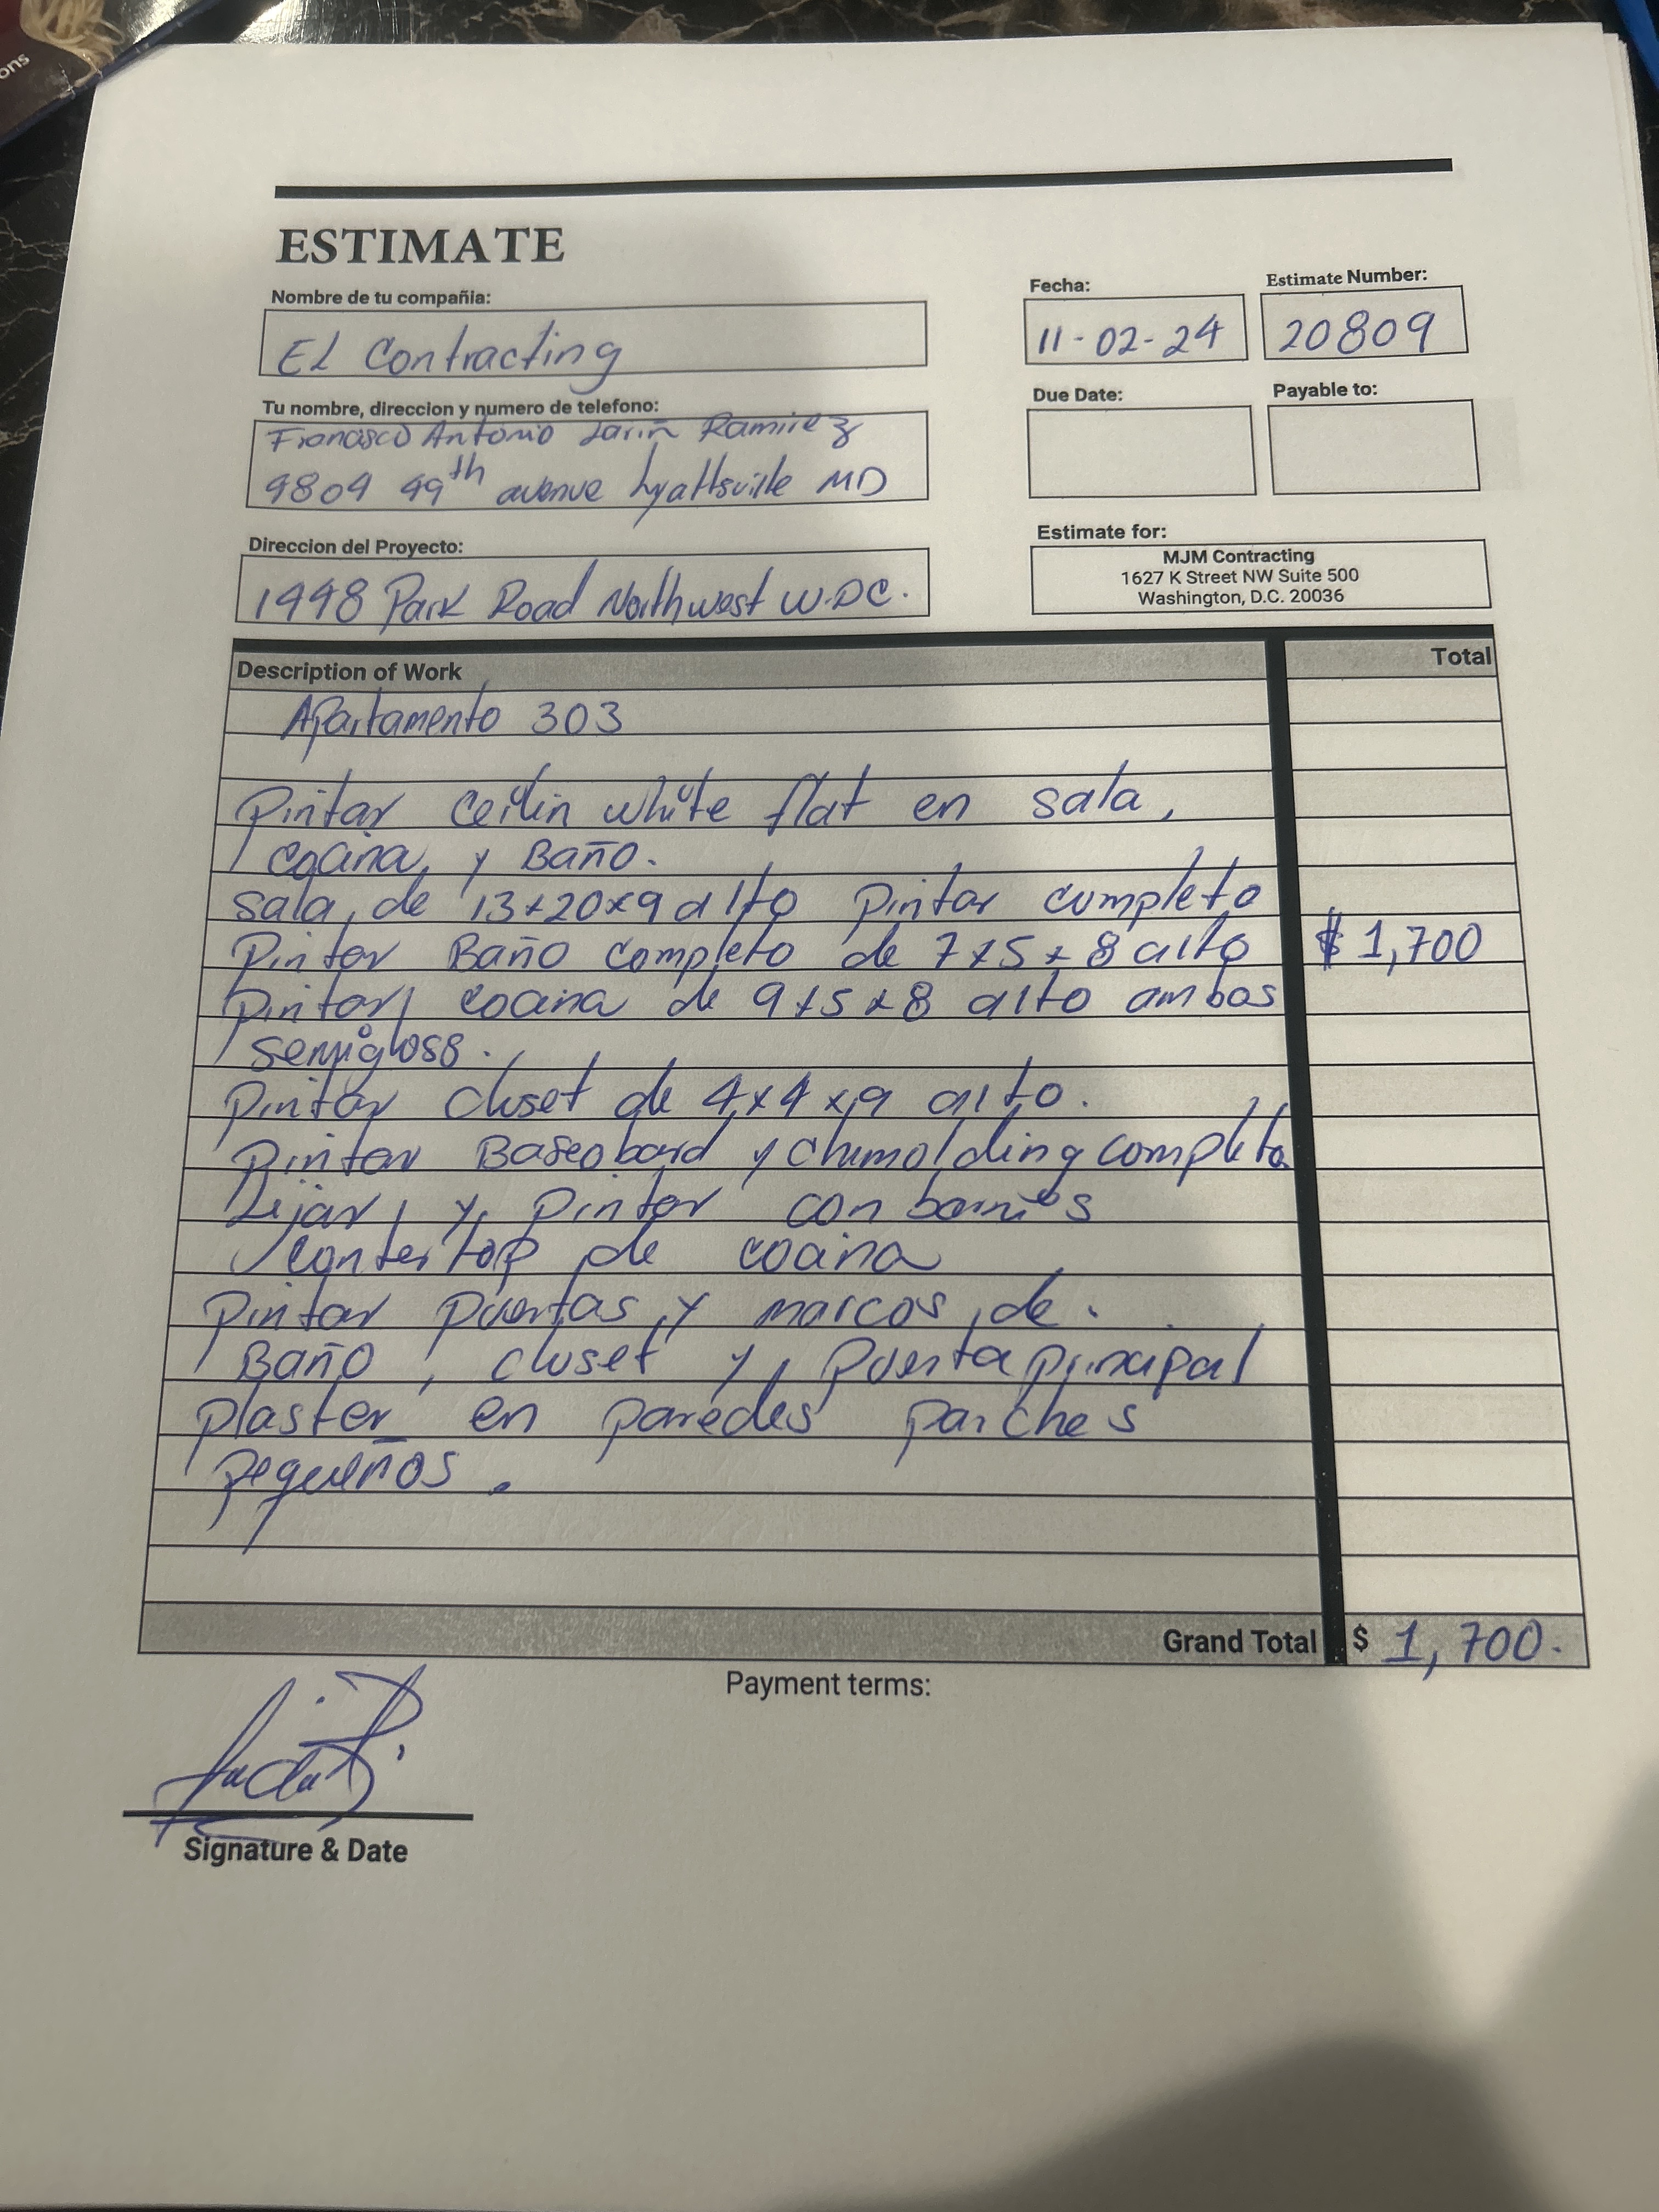 ons
ESTIMATE
Nombre de tu compañia:
EL Contracting
Fecha:
11-02-24
Estimate Number:
20809
Tu nombre, direccion y numero de telefono:
Francisco Antonio Ramirez
9809 49th avenue hyattsville MD
Due Date:
Payable to:
Direccion del Proyecto:
1448 Park Road Northwest W.DC.
Estimate for:
MJM Contracting
1627 K Street NW Suite 500
Washington, D.C. 20036
Description of Work
Total
Apartamento 303
Pintar Ceilin white flat en sala,
cocina, y Baño.
sala, de 13x20x9 alto Pintar completo
Pintar Baño completo de 7x5x8 alto $ 1,700
Pintar cocina de 9x5x8 alto ambos
semigloss.
Pintar closet de 4x4x9 alto.
Pintar Baseobard y chumolding completo
Lijar, y, pintar con barnies
contertop de cocina
Pintar puertas, y marcos, de.
Baño, closet y, puerta principal
plaster en paredes parches
pequeños.
Grand Total $ 1,700.
Payment terms:
Signature & Date